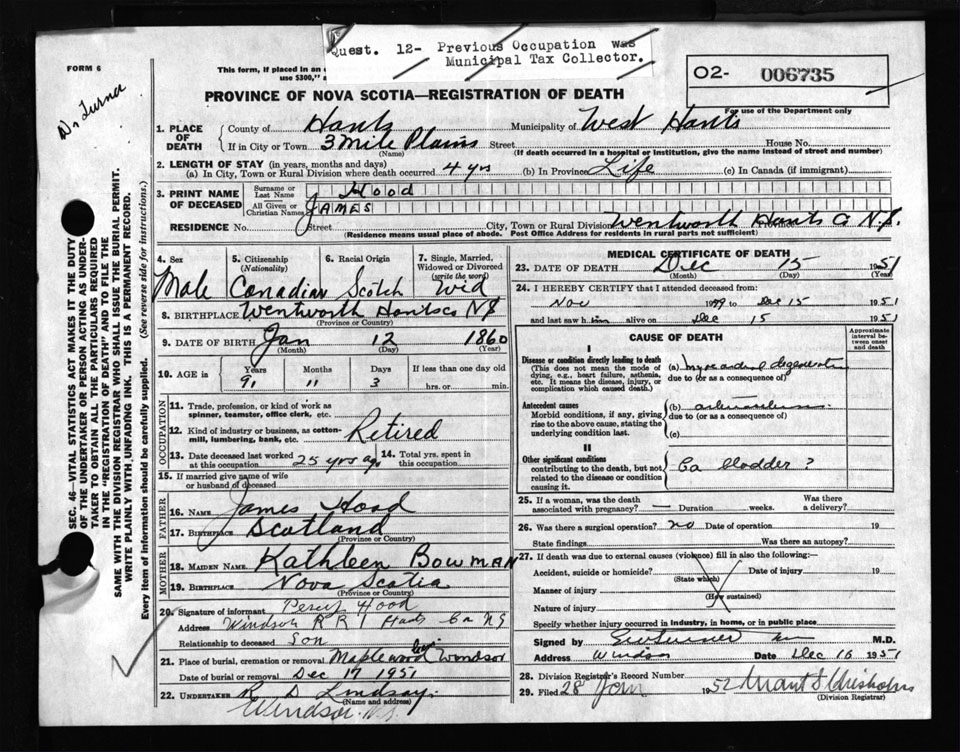 Quest. 12- Previous Occupation was
Municipal Tax Collector.
FORM 6
This form, if placed in an
use $300,"
O2- 006735
For use of the Department only
PROVINCE OF NOVA SCOTIA—REGISTRATION OF DEATH
D. Turner
1. PLACE OF DEATH
County of Hants Municipality of West Hants
If in City or Town 3 Mile Plains Street House No.
(Name) (If death occurred in a hospital or institution, give the name instead of street and number)
2. LENGTH OF STAY (in years, months and days)
(a) In City, Town or Rural Division where death occurred 4 yrs (b) In Province Life (c) In Canada (if immigrant)
3. PRINT NAME OF DECEASED
Surname or Last Name Hood
All Given or Christian Names JAMES
RESIDENCE No. Street City, Town or Rural Division Wentworth Hants Co N.S.
(Residence means usual place of abode. Post Office Address for residents in rural parts not sufficient)
4. Sex 5. Citizenship (Nationality) 6. Racial Origin 7. Single, Married, Widowed or Divorced (write the word)
Male Canadian Scotch Wid
8. BIRTHPLACE Wentworth Hants Co N S
(Province or Country)
9. DATE OF BIRTH Jan 12 1860
(Month) (Day) (Year)
10. AGE in Years Months Days If less than one day old
91 11 3 hrs. or min.
OCCUPATION
11. Trade, profession, or kind of work as spinner, teamster, office clerk, etc.
12. Kind of industry or business, as cotton-mill, lumbering, bank, etc. Retired
13. Date deceased last worked at this occupation 25 yrs ago 14. Total yrs. spent in this occupation
15. If married give name of wife or husband of deceased
FATHER
16. NAME James Hood
17. BIRTHPLACE Scotland
(Province or Country)
MOTHER
18. MAIDEN NAME Kathleen BOWMAN
19. BIRTHPLACE Nova Scotia
(Province or Country)
20. Signature of informant Percy Hood
Address Windsor R R 1 Hants Co N S
Relationship to deceased Son
21. Place of burial, cremation or removal Maplewood Windsor
Date of burial or removal Dec 17 1951
22. UNDERTAKER R D Lindsay
(Name and address)
Windsor N.S.
MEDICAL CERTIFICATE OF DEATH
23. DATE OF DEATH Dec 15 1951
(Month) (Day) (Year)
24. I HEREBY CERTIFY that I attended deceased from:
Nov 1949 to Dec 15 1951
and last saw him alive on Dec 15 1951
CAUSE OF DEATH
Approximate interval between onset and death
I
Disease or condition directly leading to death
(This does not mean the mode of dying, e.g., heart failure, asthenia, etc. It means the disease, injury, or complication which caused death.)
(a) myocardial degeneration
due to (or as a consequence of)
Antecedent causes
Morbid conditions, if any, giving rise to the above cause, stating the underlying condition last.
(b)
due to (or as a consequence of)
(c)
II
Other significant conditions contributing to the death, but not related to the disease or condition causing it.
Ca bladder ?
25. If a woman, was the death associated with pregnancy? — Duration weeks. Was there a delivery?
26. Was there a surgical operation? no Date of operation 19
State findings Was there an autopsy?
27. If death was due to external causes (violence) fill in also the following:—
Accident, suicide or homicide? Date of injury 19
(State which)
Manner of injury
(How sustained)
Nature of injury
Specify whether injury occurred in industry, in home, or in public place
Signed by M.D.
Address Windsor Date Dec 16 1951
28. Division Registrar's Record Number
29. Filed 28 Jan 1952 Chisholm
(Division Registrar)
SEC. 46—VITAL STATISTICS ACT MAKES IT THE DUTY
OF THE UNDERTAKER OR PERSON ACTING AS UNDER-
TAKER TO OBTAIN ALL THE PARTICULARS REQUIRED
IN THE "REGISTRATION OF DEATH" AND TO FILE THE
SAME WITH THE DIVISION REGISTRAR WHO SHALL ISSUE THE BURIAL PERMIT.
WRITE PLAINLY WITH UNFADING INK. THIS IS A PERMANENT RECORD.
Every item of information should be carefully supplied. (See reverse side for instructions.)